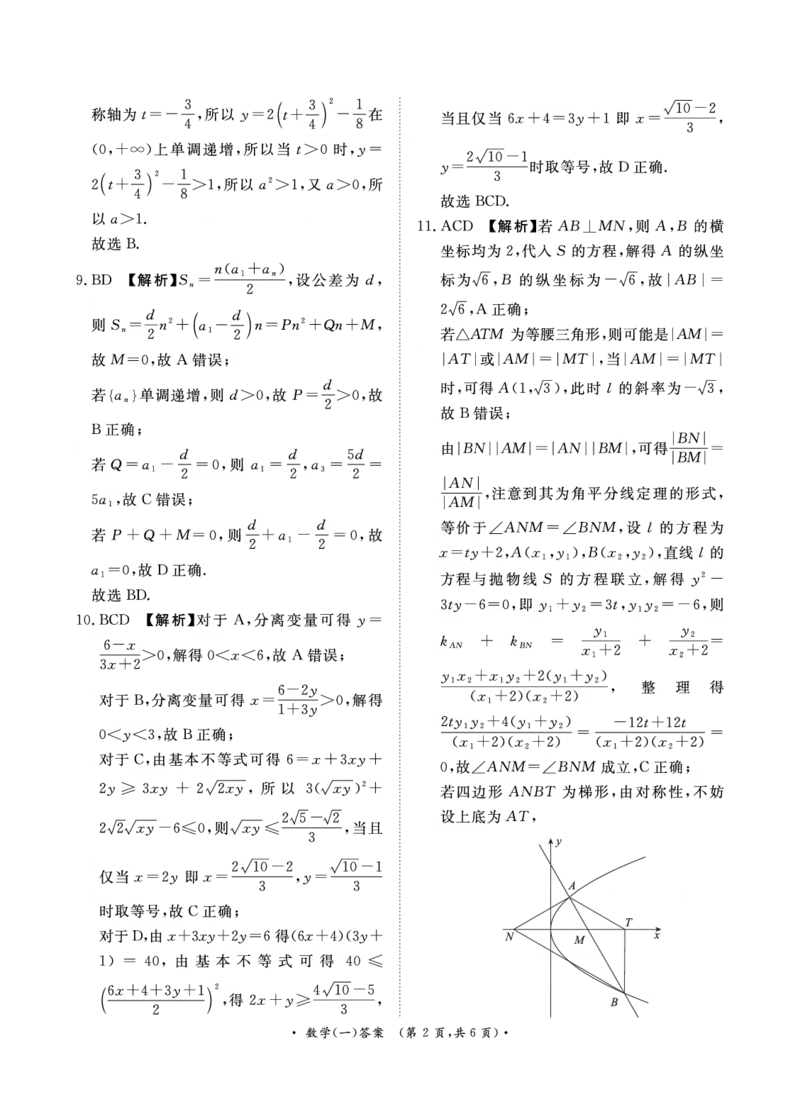 称轴为 t=-3/4,所以 y=2(t+3/4)²-1/8在
(0,+∞)上单调递增,所以当 t>0 时,y=
2(t+3/4)²-1/8>1,所以 a²>1,又 a>0,所
以 a>1.
故选 B.
9.BD 【解析】Sₙ=n(a₁+aₙ)/2,设公差为 d,
则 Sₙ=d/2n²+(a₁-d/2)n=Pn²+Qn+M,
故 M=0,故 A 错误;
若{aₙ}单调递增,则 d>0,故 P=d/2>0,故
B 正确;
若 Q=a₁-d/2=0,则 a₁=d/2,a₃=5d/2=
5a₁,故 C 错误;
若 P+Q+M=0,则d/2+a₁-d/2=0,故
a₁=0,故 D 正确.
故选 BD.
10.BCD 【解析】对于 A,分离变量可得 y=
(6-x)/(3x+2)>0,解得 0<x<6,故 A 错误;
对于 B,分离变量可得 x=(6-2y)/(1+3y)>0,解得
0<y<3,故 B 正确;
对于 C,由基本不等式可得 6=x+3xy+
2y≥3xy+2√2xy,所以 3(√xy)²+
2√2√xy-6≤0,则√xy≤(2√5-√2)/3,当且
仅当 x=2y 即 x=(2√10-2)/3,y=(√10-1)/3
时取等号,故 C 正确;
对于 D,由 x+3xy+2y=6 得(6x+4)(3y+
1)=40,由基本不等式可得 40≤
((6x+4+3y+1)/2)²,得 2x+y≥(4√10-5)/3,
当且仅当 6x+4=3y+1 即 x=(√10-2)/3,
y=(2√10-1)/3时取等号,故 D 正确.
故选 BCD.
11.ACD 【解析】若 AB⊥MN,则 A,B 的横
坐标均为 2,代入 S 的方程,解得 A 的纵坐
标为√6,B 的纵坐标为-√6,故|AB|=
2√6,A 正确;
若△ATM 为等腰三角形,则可能是|AM|=
|AT|或|AM|=|MT|,当|AM|=|MT|
时,可得 A(1,√3),此时 l 的斜率为-√3,
故 B 错误;
由|BN||AM|=|AN||BM|,可得|BN|/|BM|=
|AN|/|AM|,注意到其为角平分线定理的形式,
等价于∠ANM=∠BNM,设 l 的方程为
x=ty+2,A(x₁,y₁),B(x₂,y₂),直线 l 的
方程与抛物线 S 的方程联立,解得 y²-
3ty-6=0,即 y₁+y₂=3t,y₁y₂=-6,则
k_AN + k_BN = y₁/(x₁+2) + y₂/(x₂+2)=
(y₁x₂+x₁y₂+2(y₁+y₂))/((x₁+2)(x₂+2)),整理得
(2ty₁y₂+4(y₁+y₂))/((x₁+2)(x₂+2))=(-12t+12t)/((x₁+2)(x₂+2))=
0,故∠ANM=∠BNM 成立,C 正确;
若四边形 ANBT 为梯形,由对称性,不妨
设上底为 AT,
y
A
T
N
M
x
B
· 数学(一)答案 (第 2 页,共 6 页)·